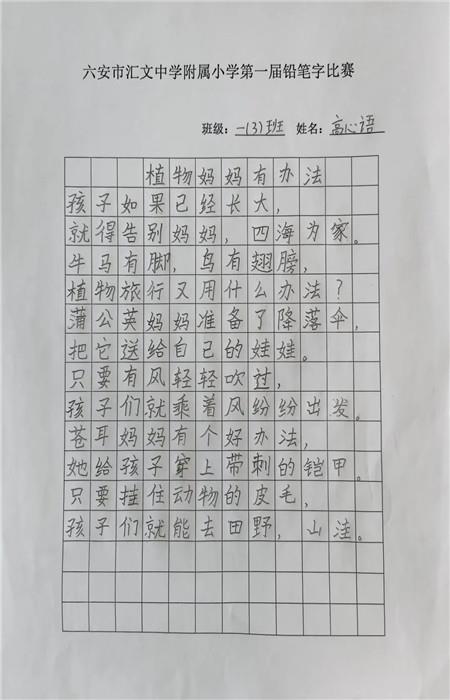 六安市汇文中学附属小学第一届铅笔字比赛
班级：一(3)班 姓名：高心语
植物妈妈有办法
孩子如果已经长大，
就得告别妈妈，四海为家。
牛马有脚，鸟有翅膀，
植物旅行又用什么办法？
蒲公英妈妈准备了降落伞，
把它送给自己的娃娃。
只要有风轻轻吹过，
孩子们就乘着风纷纷出发。
苍耳妈妈有个好办法，
她给孩子穿上带刺的铠甲。
只要挂住动物的皮毛，
孩子们就能去田野，山洼。